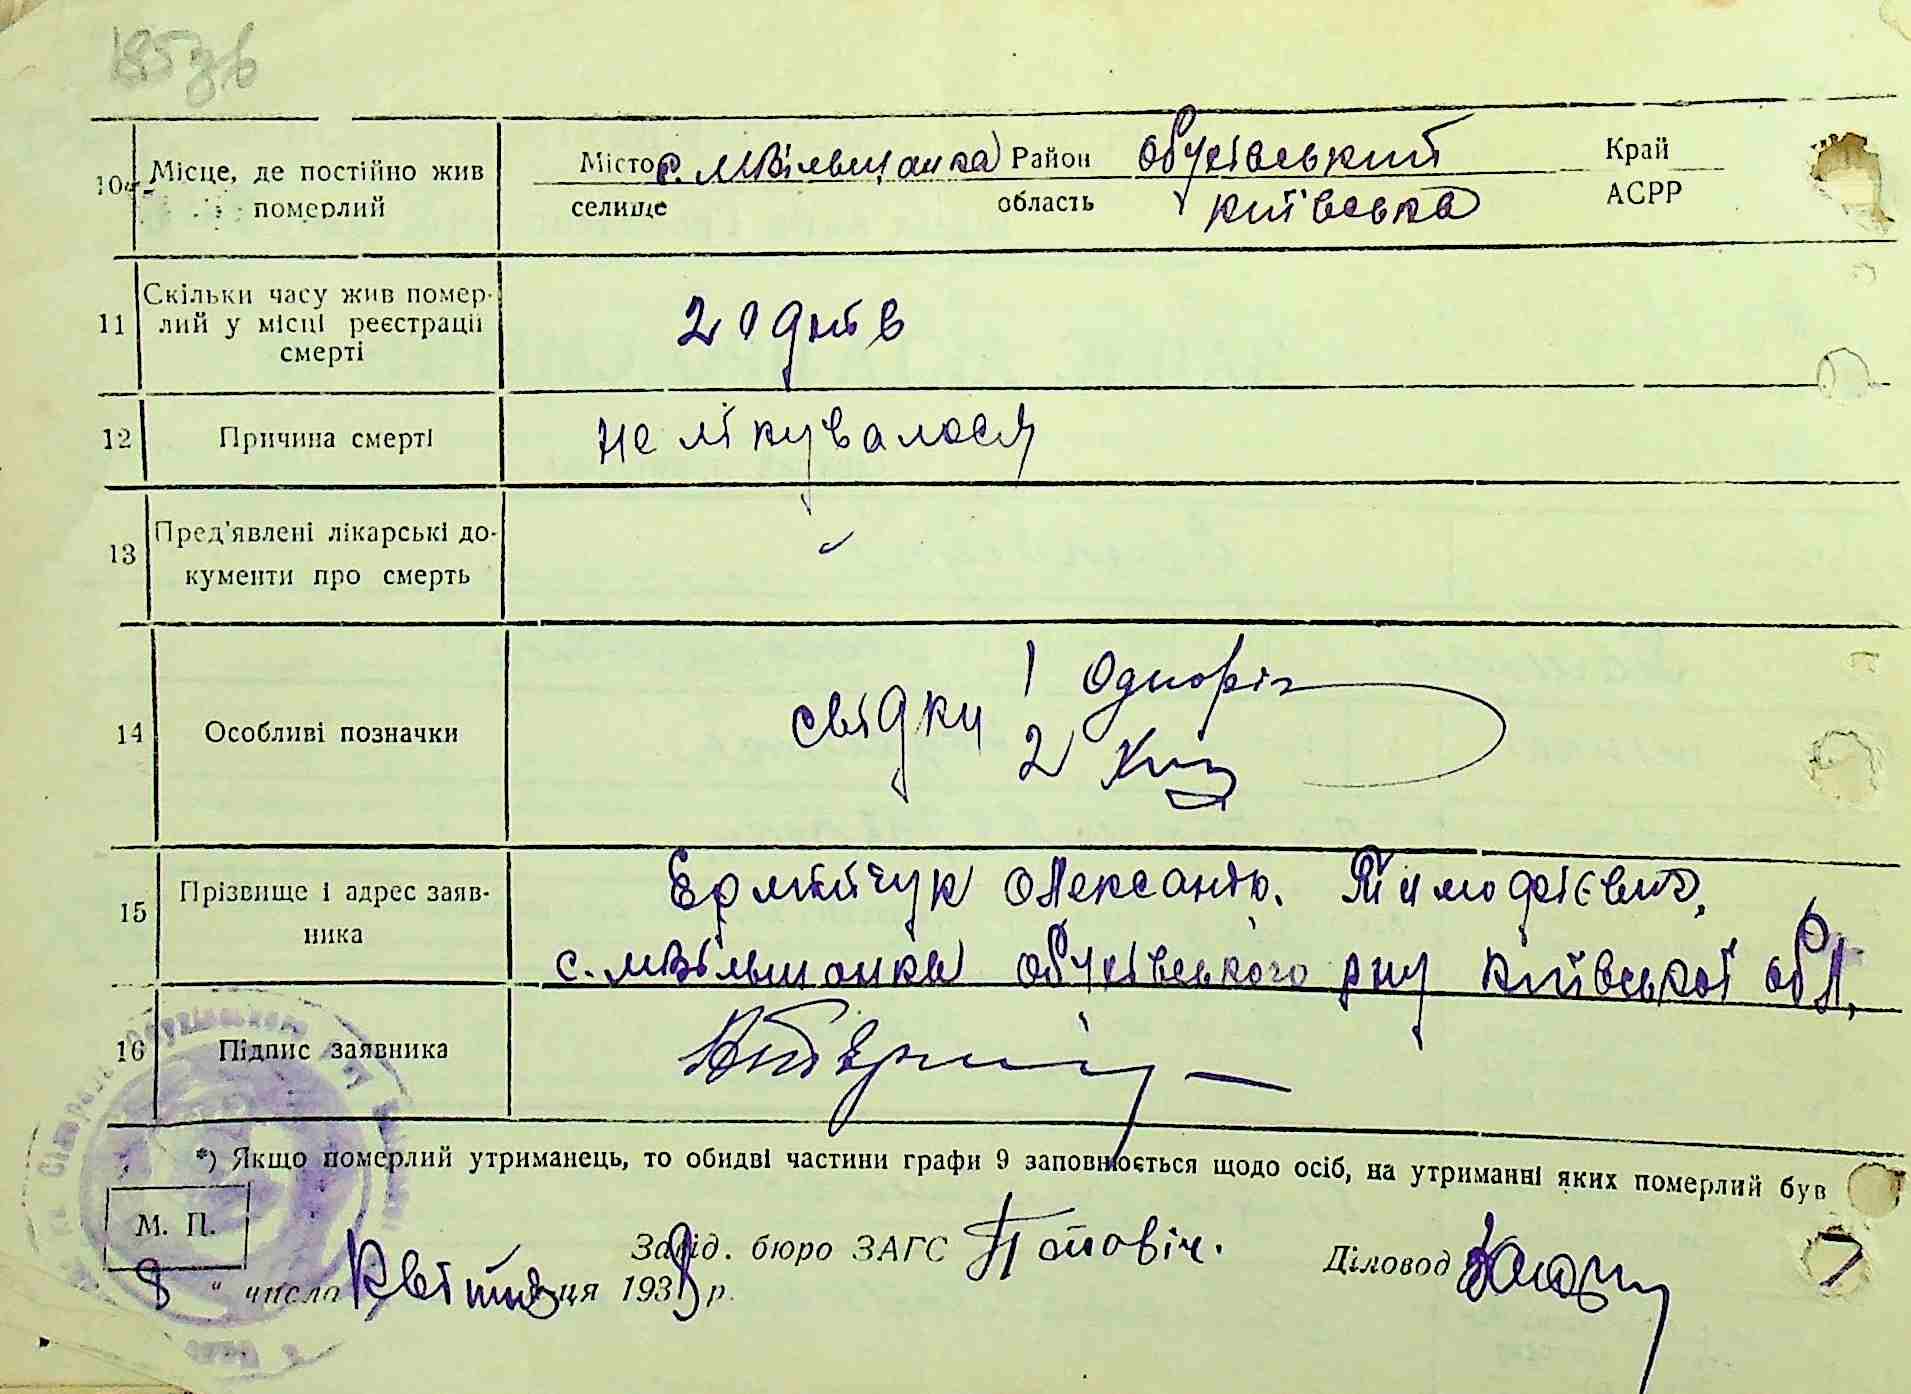 185 зв
10 Місце, де постійно жив померлий
Місто с. МВільшанка Район Обухівський Край
селище область київська АСРР
11 Скільки часу жив помер-
лий у місці реєстрації
смерті
20 днів
12 Причина смерті не лікувалося
13 Пред'явлені лікарські до-
кументи про смерть
14 Особливі позначки
свідки 1 Одноріг
2
15 Прізвище і адрес заяв-
ника
Ермійчук Олександ. Тимофієвич,
с. МВільшанка Обухівського рну київської обл,
16 Підпис заявника
*) Якщо померлий утриманець, то обидві частини графи 9 заповнюється щодо осіб, на утриманні яких померлий був
М. П.
Завід. бюро ЗАГС Попович. Діловод
8 " числа Квітня ця 1938 р.
7